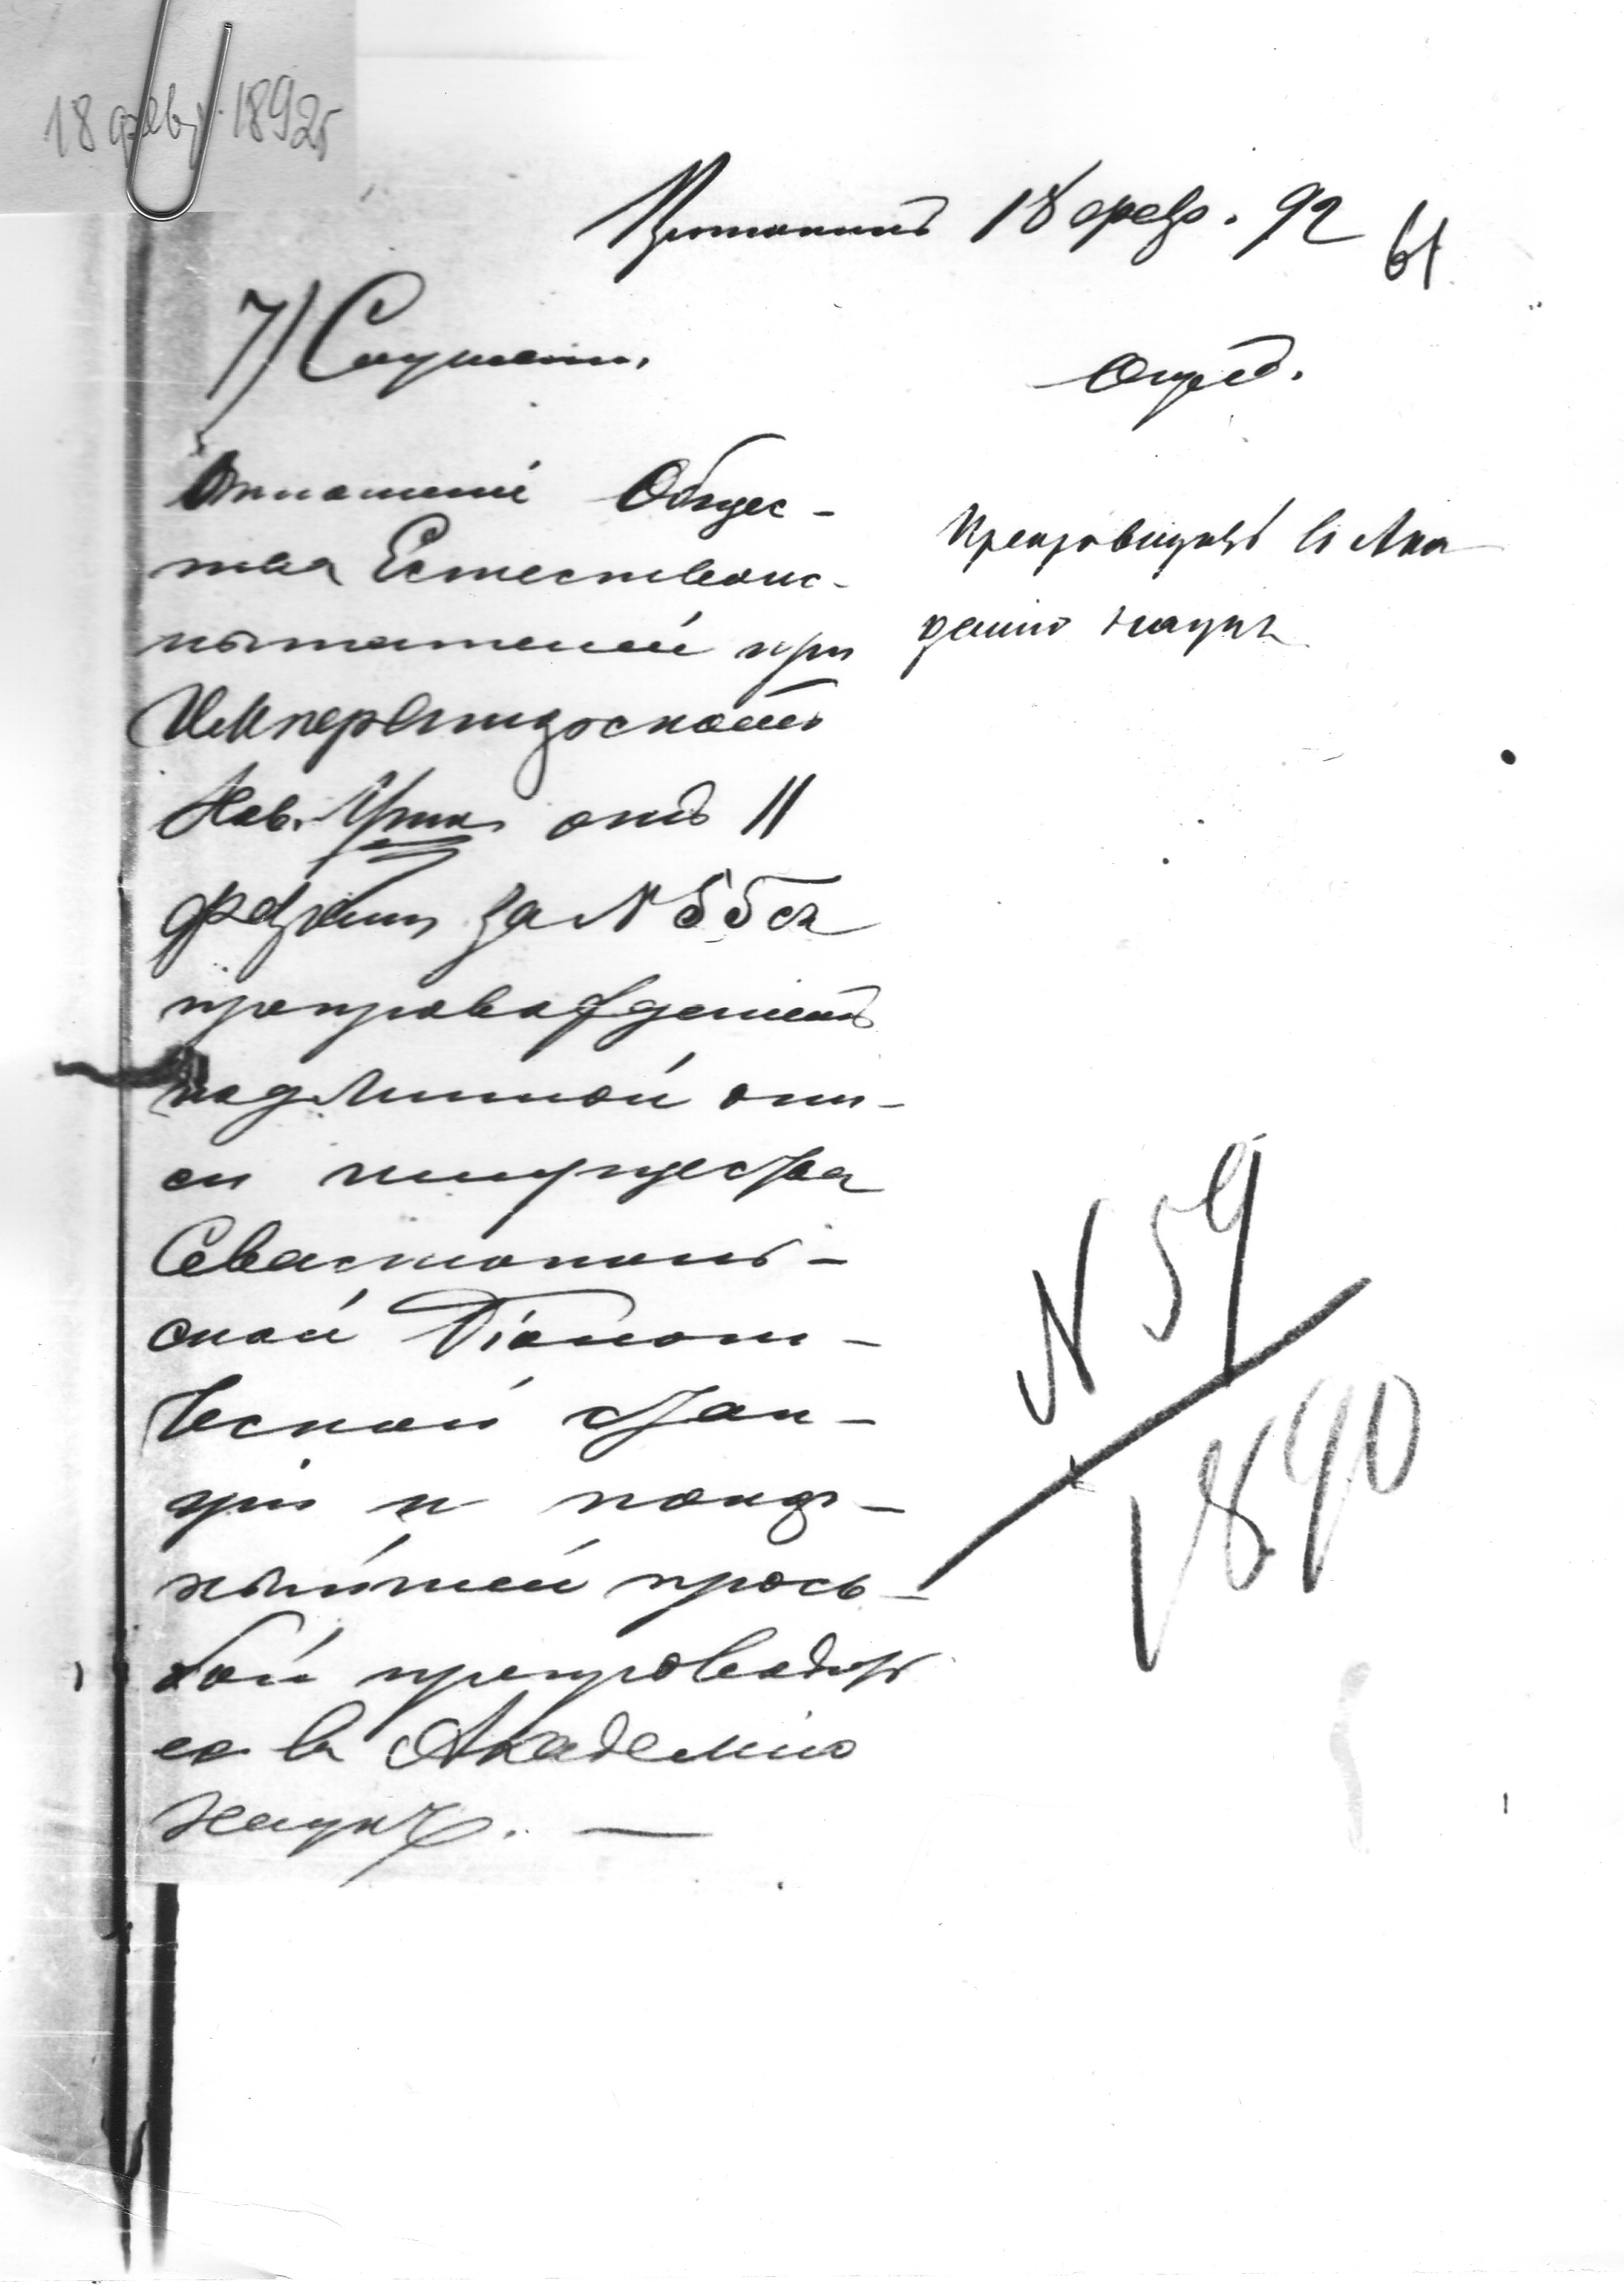 18 февр. 1892г
Протоколъ 18 февр. 92
61
7) Слушали.
Отношеніе Общес-
тва Естествоис-
пытателей при
Императорскомъ
Нов. Унив. отъ 11
февраля за N 55 съ
препровожденіемъ
подлинной опи-
си имущества
Севастополь-
ской Біологи-
ческой стан-
ціи и покор-
нѣйшей прось-
бой препроводить
ее въ Академію
Наукъ. —
Опред.
Препроводить въ Ака
демію наукъ
N 59
1890